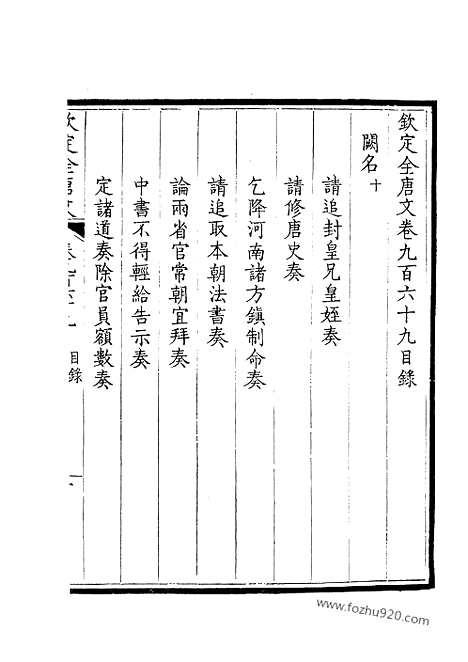 欽定全唐文卷九百六十九目錄
闕名十
請追封皇兄皇姪奏
請修唐史奏
乞降河南諸方鎮制命奏
請追取本朝法書奏
論兩省官常朝宜拜奏
中書不得輕給告示奏
定諸道奏除官員額數奏
欽定全唐文
目錄
www.fozhu920.com